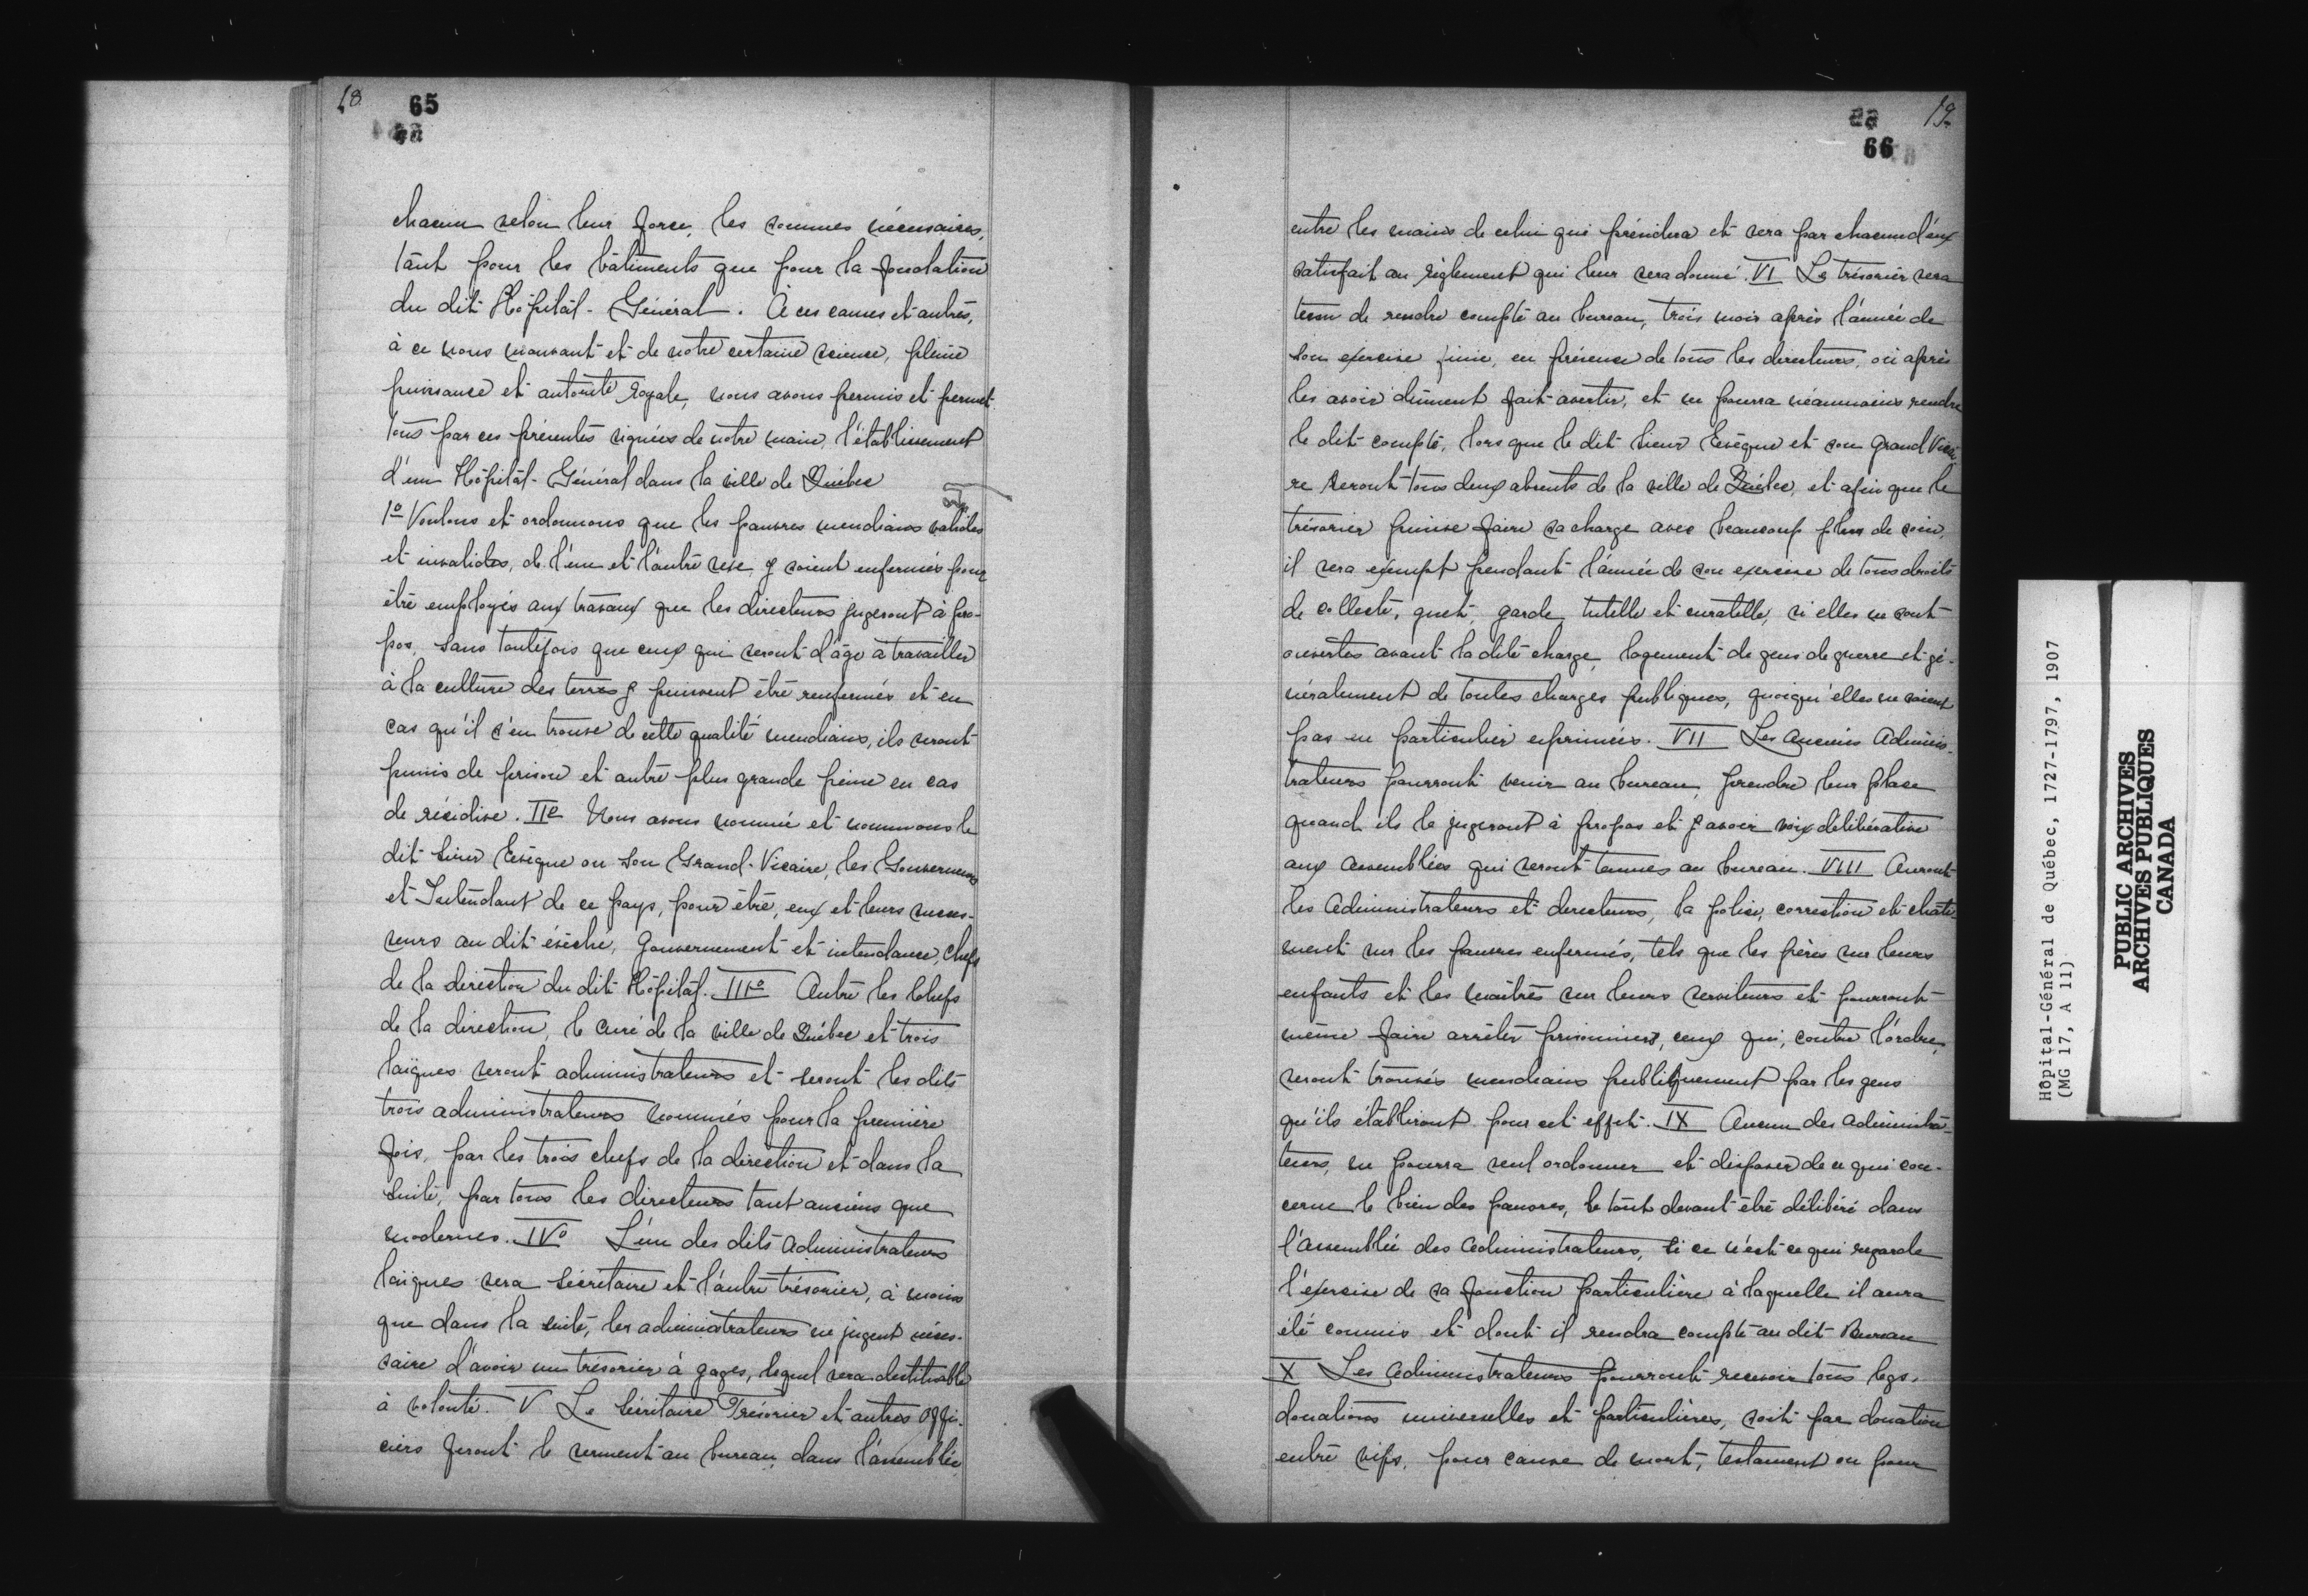 18
65
chacun selon leur force, les sommes nécessaires,
tant pour les bâtiments que pour la fondation
du dit Hôpital-Général. À ces causes et autres,
à ce nous mouvant et de notre certaine science, pleine
puissance et autorité royale, nous avons permis et permet-
tons par ces présentes signées de notre main, l'établissement
d'un Hôpital-Général dans la ville de Québec
1º Voulons et ordonnons que les pauvres mendians valides
et invalides, de l'un et l'autre sexe, y soient enfermés pour
être employés aux travaux que les directeurs jugeront à pro-
pos, sans toutefois que ceux qui seront d'âge à travailler
à la culture des terres y puissent être renfermés et en
cas qu'il s'en trouve de cette qualité mendians, ils seront
punis de prison et autre plus grande peine en cas
de récidive. IIe Nous avons nommé et nommons le
dit Sieur Evêque ou son Grand-Vicaire, les Gouverneurs
et Intendant de ce pays, pour être, eux et leurs succes-
seurs au dit évêché, Gouvernement et intendance, Chefs
de la direction du dit Hôpital. IIIº Outre les Chefs
de la direction, le curé de la ville de Québec et trois
laïques seront administrateurs et seront les dits
trois administrateurs nommés pour la première
fois, par les trois chefs de la direction et dans la
suite, par tous les directeurs tant anciens que
modernes. IVº L'un des dits Administrateurs
laïques sera Sécrétaire et l'autre trésorier, à moins
que dans la suite, les administrateurs ne jugent néces-
saire d'avoir un trésorier à gages, lequel sera destituable
à volonté. V Le Sécrétaire Trésorier et autres offi-
ciers feront le serment au bureau, dans l'assemblée
19
66
entre les mains de celui qui présidera et sera par chacun d'eux
satisfait au règlement qui leur sera donné. VI Le trésorier sera
tenu de rendre compte au bureau, trois mois après l'année de
son exercice finie, en présence de tous les directeurs, ou après
les avoir dûment fait avertir, et ne pourra néanmoins rendre
le dit compte, lors que le dit Sieur Evêque et son Grand Vicai-
re seront tous deux absents de la ville de Québec, et afin que le
trésorier puisse faire sa charge avec beaucoup plus de soin,
il sera exempt pendant l'année de son exercice de tous droits
de collecte, guet, garde, tutelle et curatelle, si elles ne sont
ouvertes avant la dite charge, logement de gens de guerre et gé-
néralement de toutes charges publiques, quoiqu'elles ne soient
pas en particulier exprimées. VII Les anciens Adminis-
trateurs pourront venir au bureau, prendre leur place
quand ils le jugeront à propos et y avoir voix délibérative
aux assemblées qui seront tenues au bureau. VIII Auront
les Administrateurs et directeurs, la police, correction et châti-
ment sur les pauvres enfermés, tels que les pères sur leurs
enfants et les maîtres sur leurs serviteurs et pourront
même faire arrêter prisonniers, ceux qui, contre l'ordre,
seront trouvés mendians publiquement par les gens
qu'ils établiront pour cet effet. IX Aucun des administra-
teurs, ne pourra seul ordonner et disposer de ce qui con-
cerne le bien des pauvres, le tout devant être délibéré dans
l'assemblée des administrateurs, si ce n'est ce qui regarde
l'exercise de sa fonction particulière à laquelle il aura
été commis et dont il rendra compte au dit Bureau
X Les administrateurs pourront recevoir tous legs,
donations universelles et particulières, soit par donation
entre vifs, pour cause de mort, testament ou pour
Hôpital-Général de Québec, 1727-1797, 1907
(MG 17, A 11)
PUBLIC ARCHIVES
ARCHIVES PUBLIQUES
CANADA